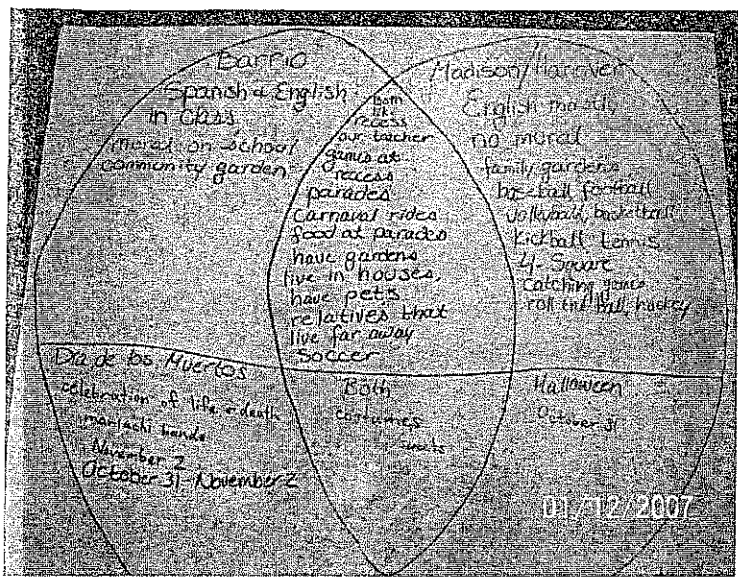 Barrio
Spanish & English
in Class
mural on school
community garden
Both
like
recess
our teacher
games at
recess
parades
Carnaval rides
food at parades
have gardens
live in houses,
have pets
relatives that
live far away
Soccer
Madison/Hanover
English mostly
no mural
family gardens
baseball football
volleyball, basketball,
Kickball tennis
4-Square
Catching games
roll the ball, hockey
Dia de los Muertos
celebration of life & death
mariachi bands
November 2
October 31-November 2
Both
costumes
Halloween
October 31
01/12/2007